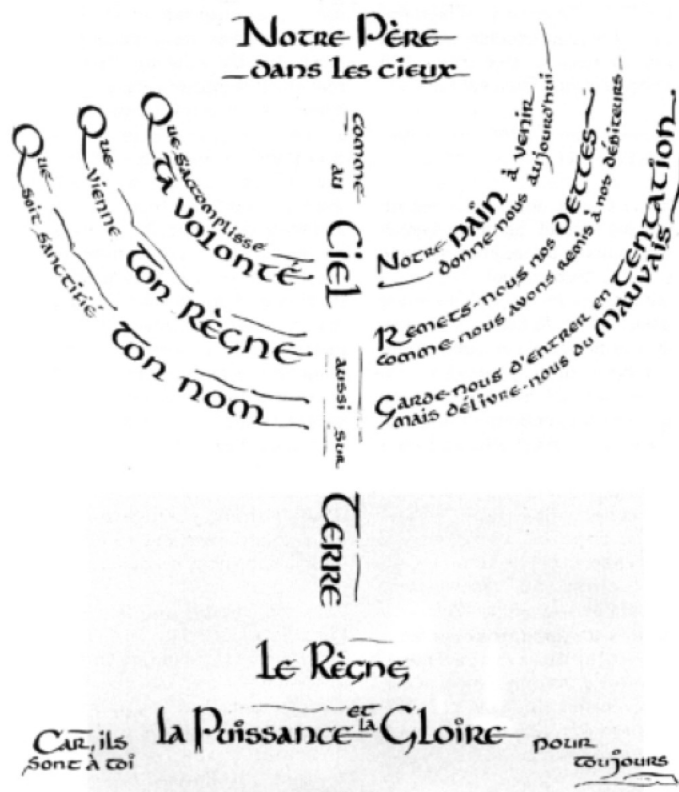 Notre Père
dans les cieux
Que soit sanctifié
ton nom
Que vienne
ton Règne
Que s'accomplisse
ta volonté
comme au Ciel aussi sur Terre
Notre pain à venir
donne-nous aujourd'hui
Remets-nous nos dettes
comme nous avons remis à nos débiteurs
Garde-nous d'entrer en tentation
mais délivre-nous du Mauvais
Car, ils
sont à toi
Le Règne,
la Puissance et la Gloire
pour
toujours